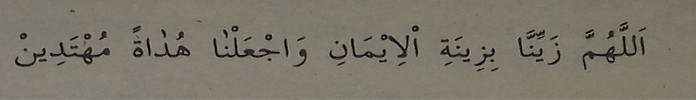 اَللَّهُمَّ زَيِّنَّا بِزِينَةِ اْلِايْمَانِ وَاجْعَلْنَا هُدَاةً مُهْتَدِينْ